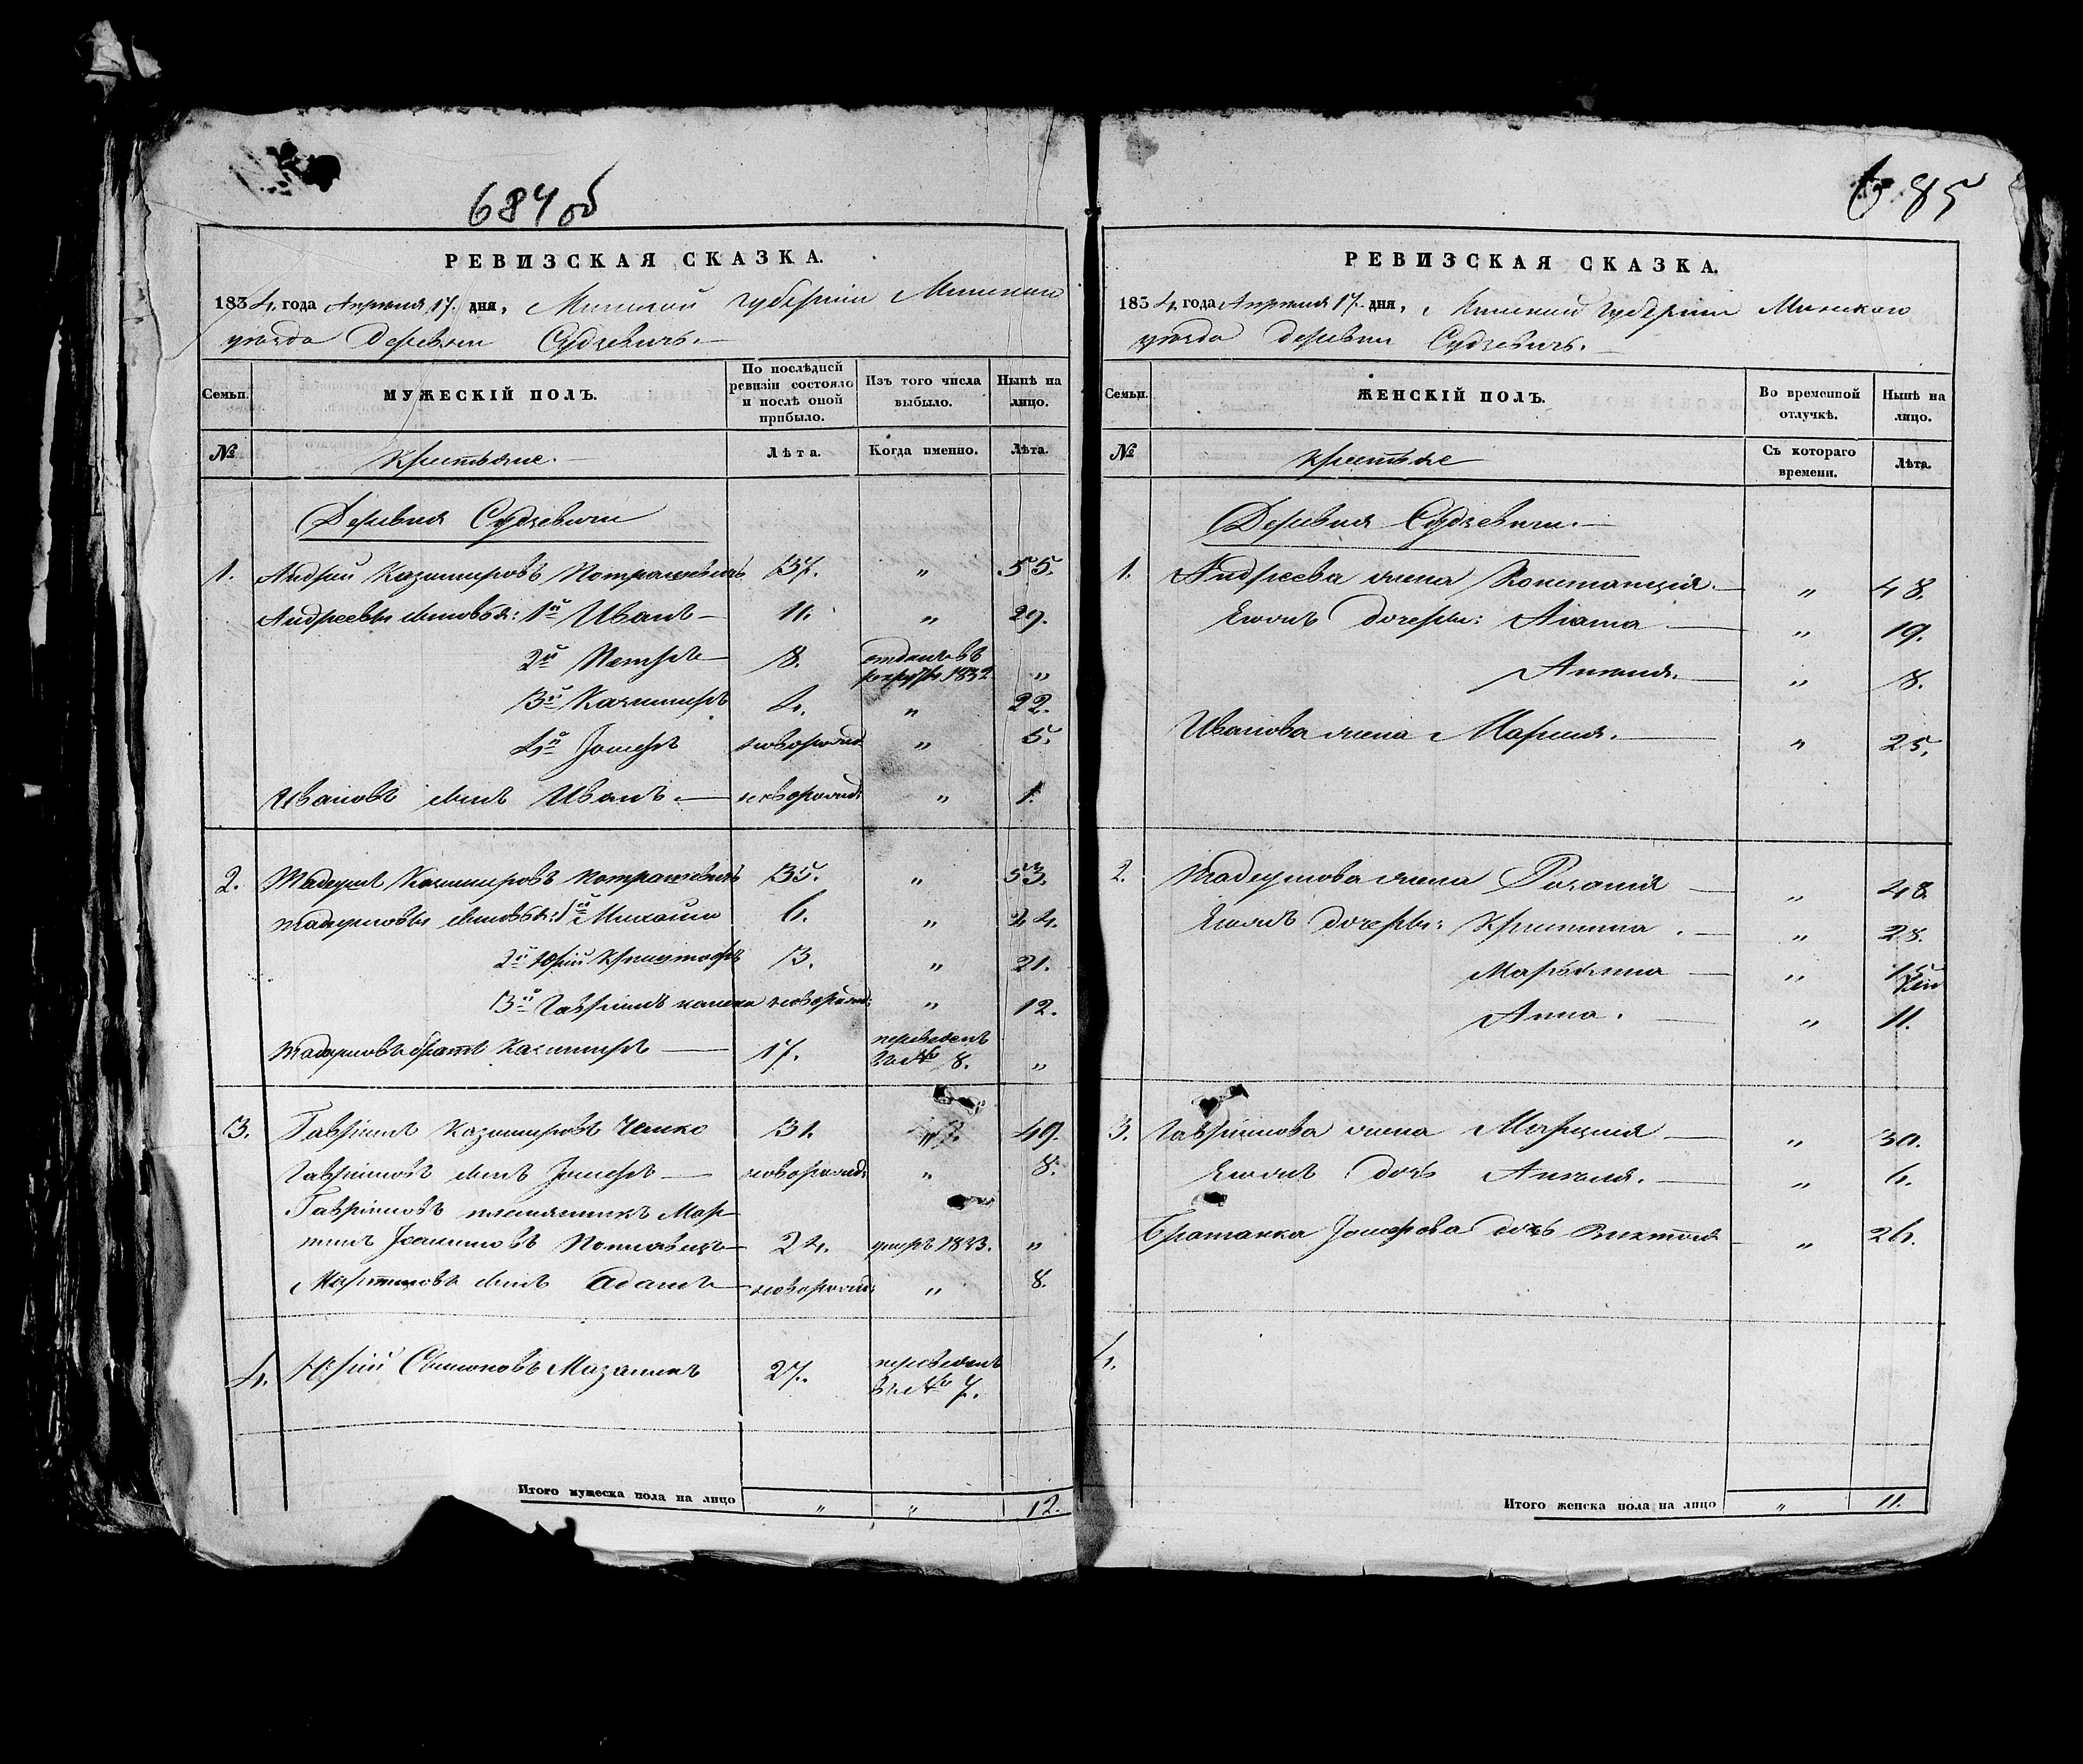 684об
РЕВИЗСКАЯ СКАЗКА.
1834 года Апреля 17. дня, Минской губернии Минскаго
уезда Деревни Судзевичъ.
Семьи.
МУЖЕСКІЙ ПОЛЪ.
По послѣдней ревизіи состояло и послѣ оной прибыло.
Изъ того числа выбыло.
Нынѣ на лицо.
№
Крестьяне.
Лѣта.
Когда именно.
Лѣта.
Деревня Судзевичи
1. Андрей Казимировъ 37. " 55.
Андреевы сыновья: 1й Иванъ 11. " 29.
2й Петръ 8. отданъ въ рекруты 1832 "
3й Казимиръ 4. " 22.
4й Іосифъ новорожд: " 5.
Ивановъ сынъ Иванъ новорожд: " 1.
2. Тадеушъ Казимировъ 35. " 53.
Тадеушовы сыновья: 1й Михайло 6. " 24.
2й Юрій Криштофъ 3. " 21.
3й Гавріилъ новорожд: " 12.
Тадеушовъ братъ Казимиръ 17. переведенъ въ № 8. "
3. Гавріилъ Казимировъ 31. " 49.
Гавріиловъ сынъ Іосифъ новорожд: " 8.
Гавріиловъ племянникъ Мар-
тинъ 24. умеръ 1833. "
Мартиновъ сынъ Адамъ новорожд: " 8.
4. Юрій 27. переведенъ въ № 7.
Итого мужеска пола на лицо " " 12.
685
РЕВИЗСКАЯ СКАЗКА.
1834 года Апреля 17. дня, Минской губернии Минскаго
уезда деревни Судзевичъ.
Семьи.
ЖЕНСКІЙ ПОЛЪ.
Во временной отлучкѣ.
Нынѣ на лицо.
№
Съ котораго времени.
Лѣта.
Деревня Судзевичи.
1. Андреева жена Констанція " 48.
Ихъ дочери: Агата " 19.
" 8.
Иванова жена " 25.
2. Тадеушова жена Розалія " 48.
Ихъ дочери: Кристина " 28.
Марьянна " 15
Анна. " 11.
3. Гавріилова жена " 30.
Ихъ дочь " 6.
Братанка Іосифова дочь " 26.
4.
Итого женска пола на лицо " 11.